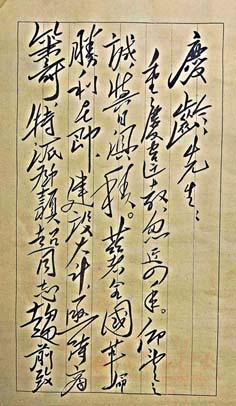 慶齡先生：
重慶違教，忽近四年。仰望之
誠，與日俱積。茲者全國革命
勝利在即，建設大計，亟待商
籌，特派鄧穎超同志趨前致